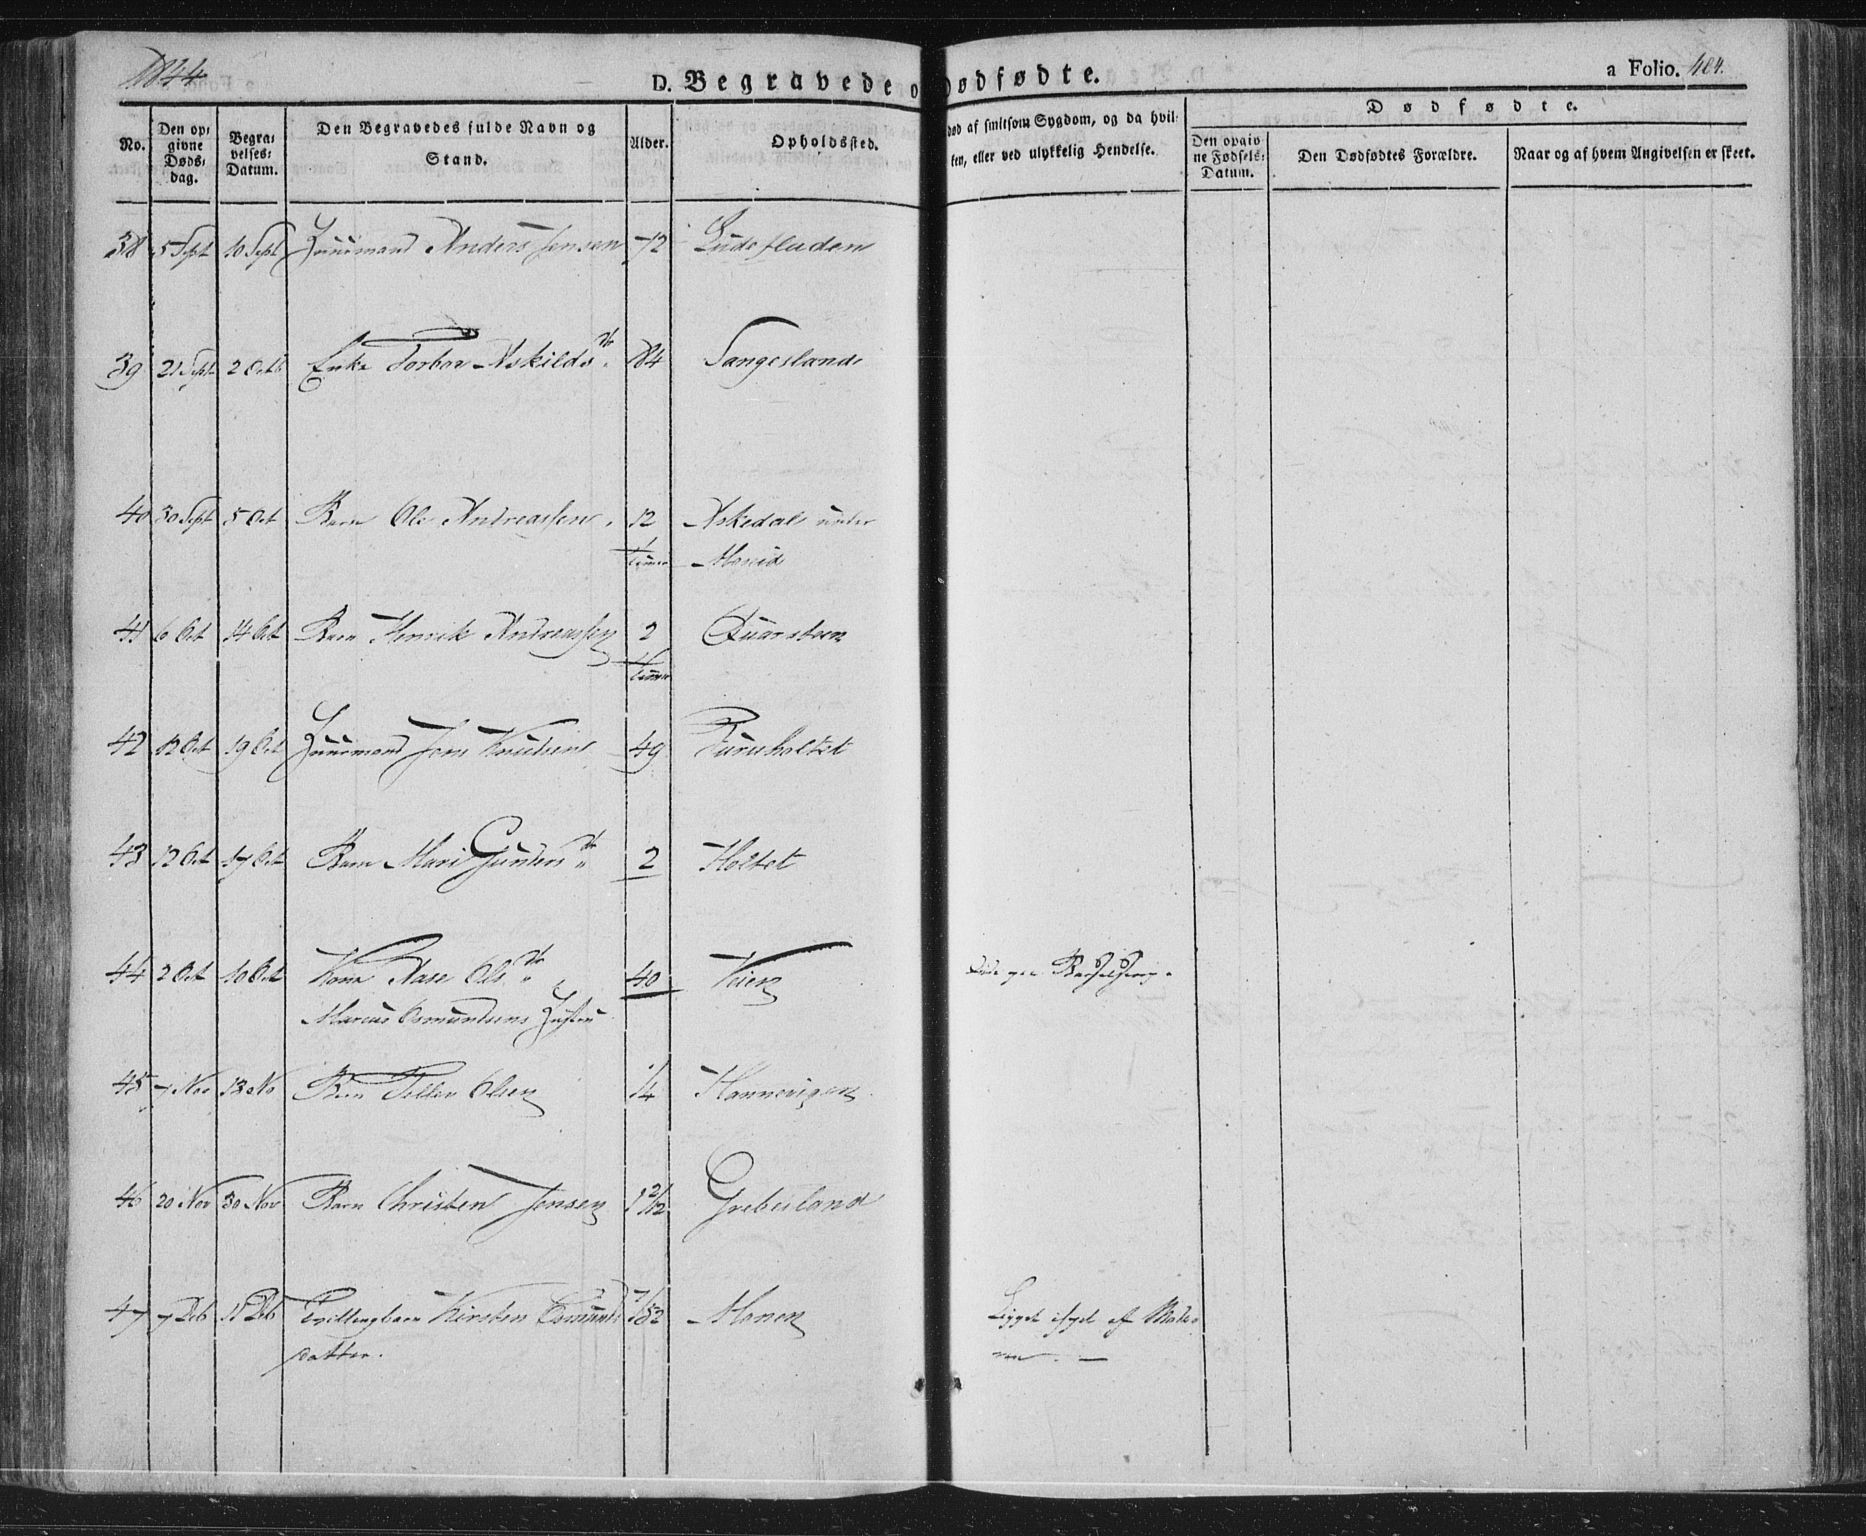 1844
D. Begravede o Dødfødte.
a Folio. 404.
No.
Den op-
givne
Døds-
dag.
Begra-
velses-
Datum.
Den Begravedes fulde Navn og
Stand.
Alder.
Opholdssted.
død af smitsom Sygdom, og da hvil-
ken, eller ved ulykkelig Hendelse.
Dødfødte.
Den opgiv-
ne Fødsels-
Datum.
Den Dødfødtes Forældre.
Naar og af hvem Angivelsen er skeet.
38 5 Sept 10 Sept Huusmand Anders Jensen 72
39 21 Sept 2 Octb Enke Torbor Askildsdtr 84 Sangesland
40 30 Sept 5 Oct Barn Ole Andreassen 12 Askedal under
Timer
41 6 Oct 14 Oct Barn Henrik Andreassen 2 Quarsteen
Timer
42 12 Oct 19 Oct Huusmand Jens Knudsen 49 Furuholtet
43 12 Oct 17 Oct Barn Mari Gundersdtr 2 Holtet
44 2 Oct 10 Oct Kone Aase Olsdtr 40 Veien
Marcus Osmundsens Hustru
45 7 Nov 13 No Barn Tellev Olsen 1/4 Hannevigen
46 20 Nov 30 Nov Barn Christen Jensen 1 2/12 Grebesland
47 7 Deb 11 Deb Tvillingbarn Kirsten Osmunds 1/52 Monen Ligget ihjel af Mode-
datter. ren.